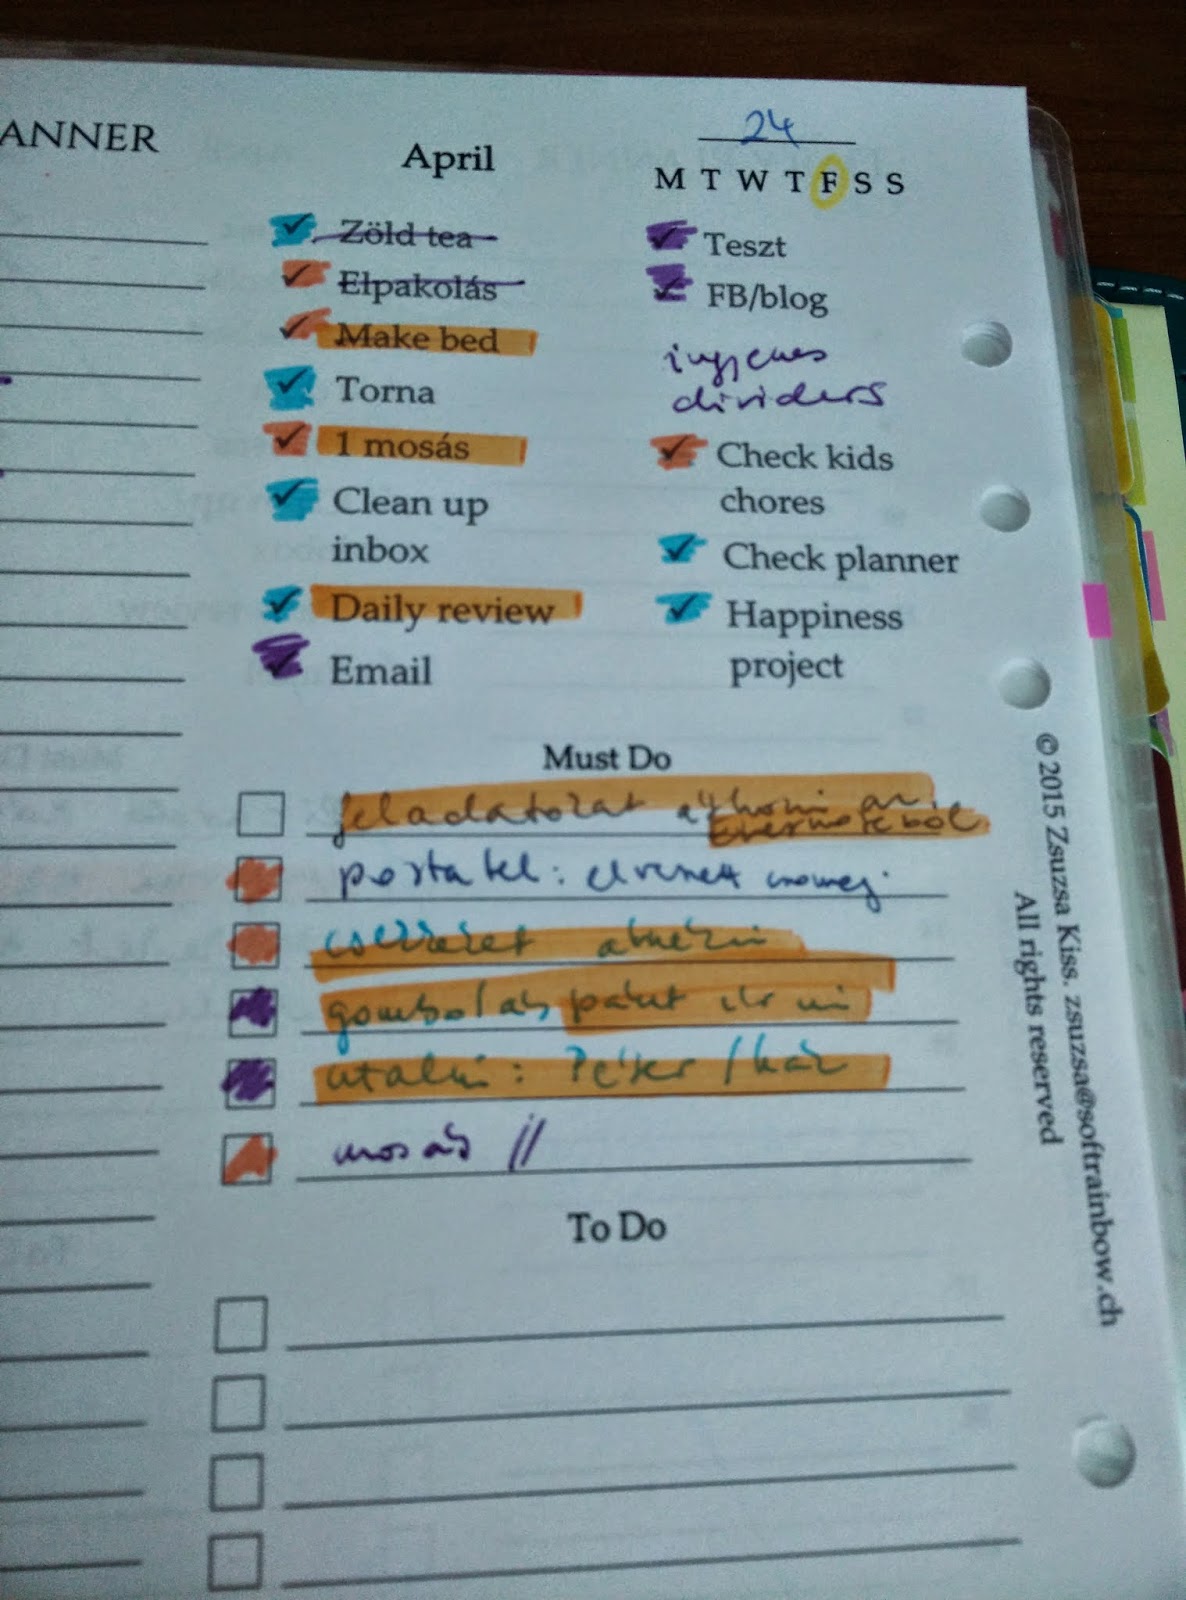 ANNER
April
24
M T W T F S S
Zöld tea
Elpakolás
Make bed
Torna
1 mosás
Clean up
inbox
Daily review
Email
Teszt
FB/blog
ingyenes
dividers
Check kids
chores
Check planner
Happiness
project
Must Do
feladatokat
evernoteból
posta tel:
átnézni
gombolás
utalni: Péter / ház
mosás //
To Do
© 2015 Zsuzsa Kiss. zsuzsa@softrainbow.ch
All rights reserved